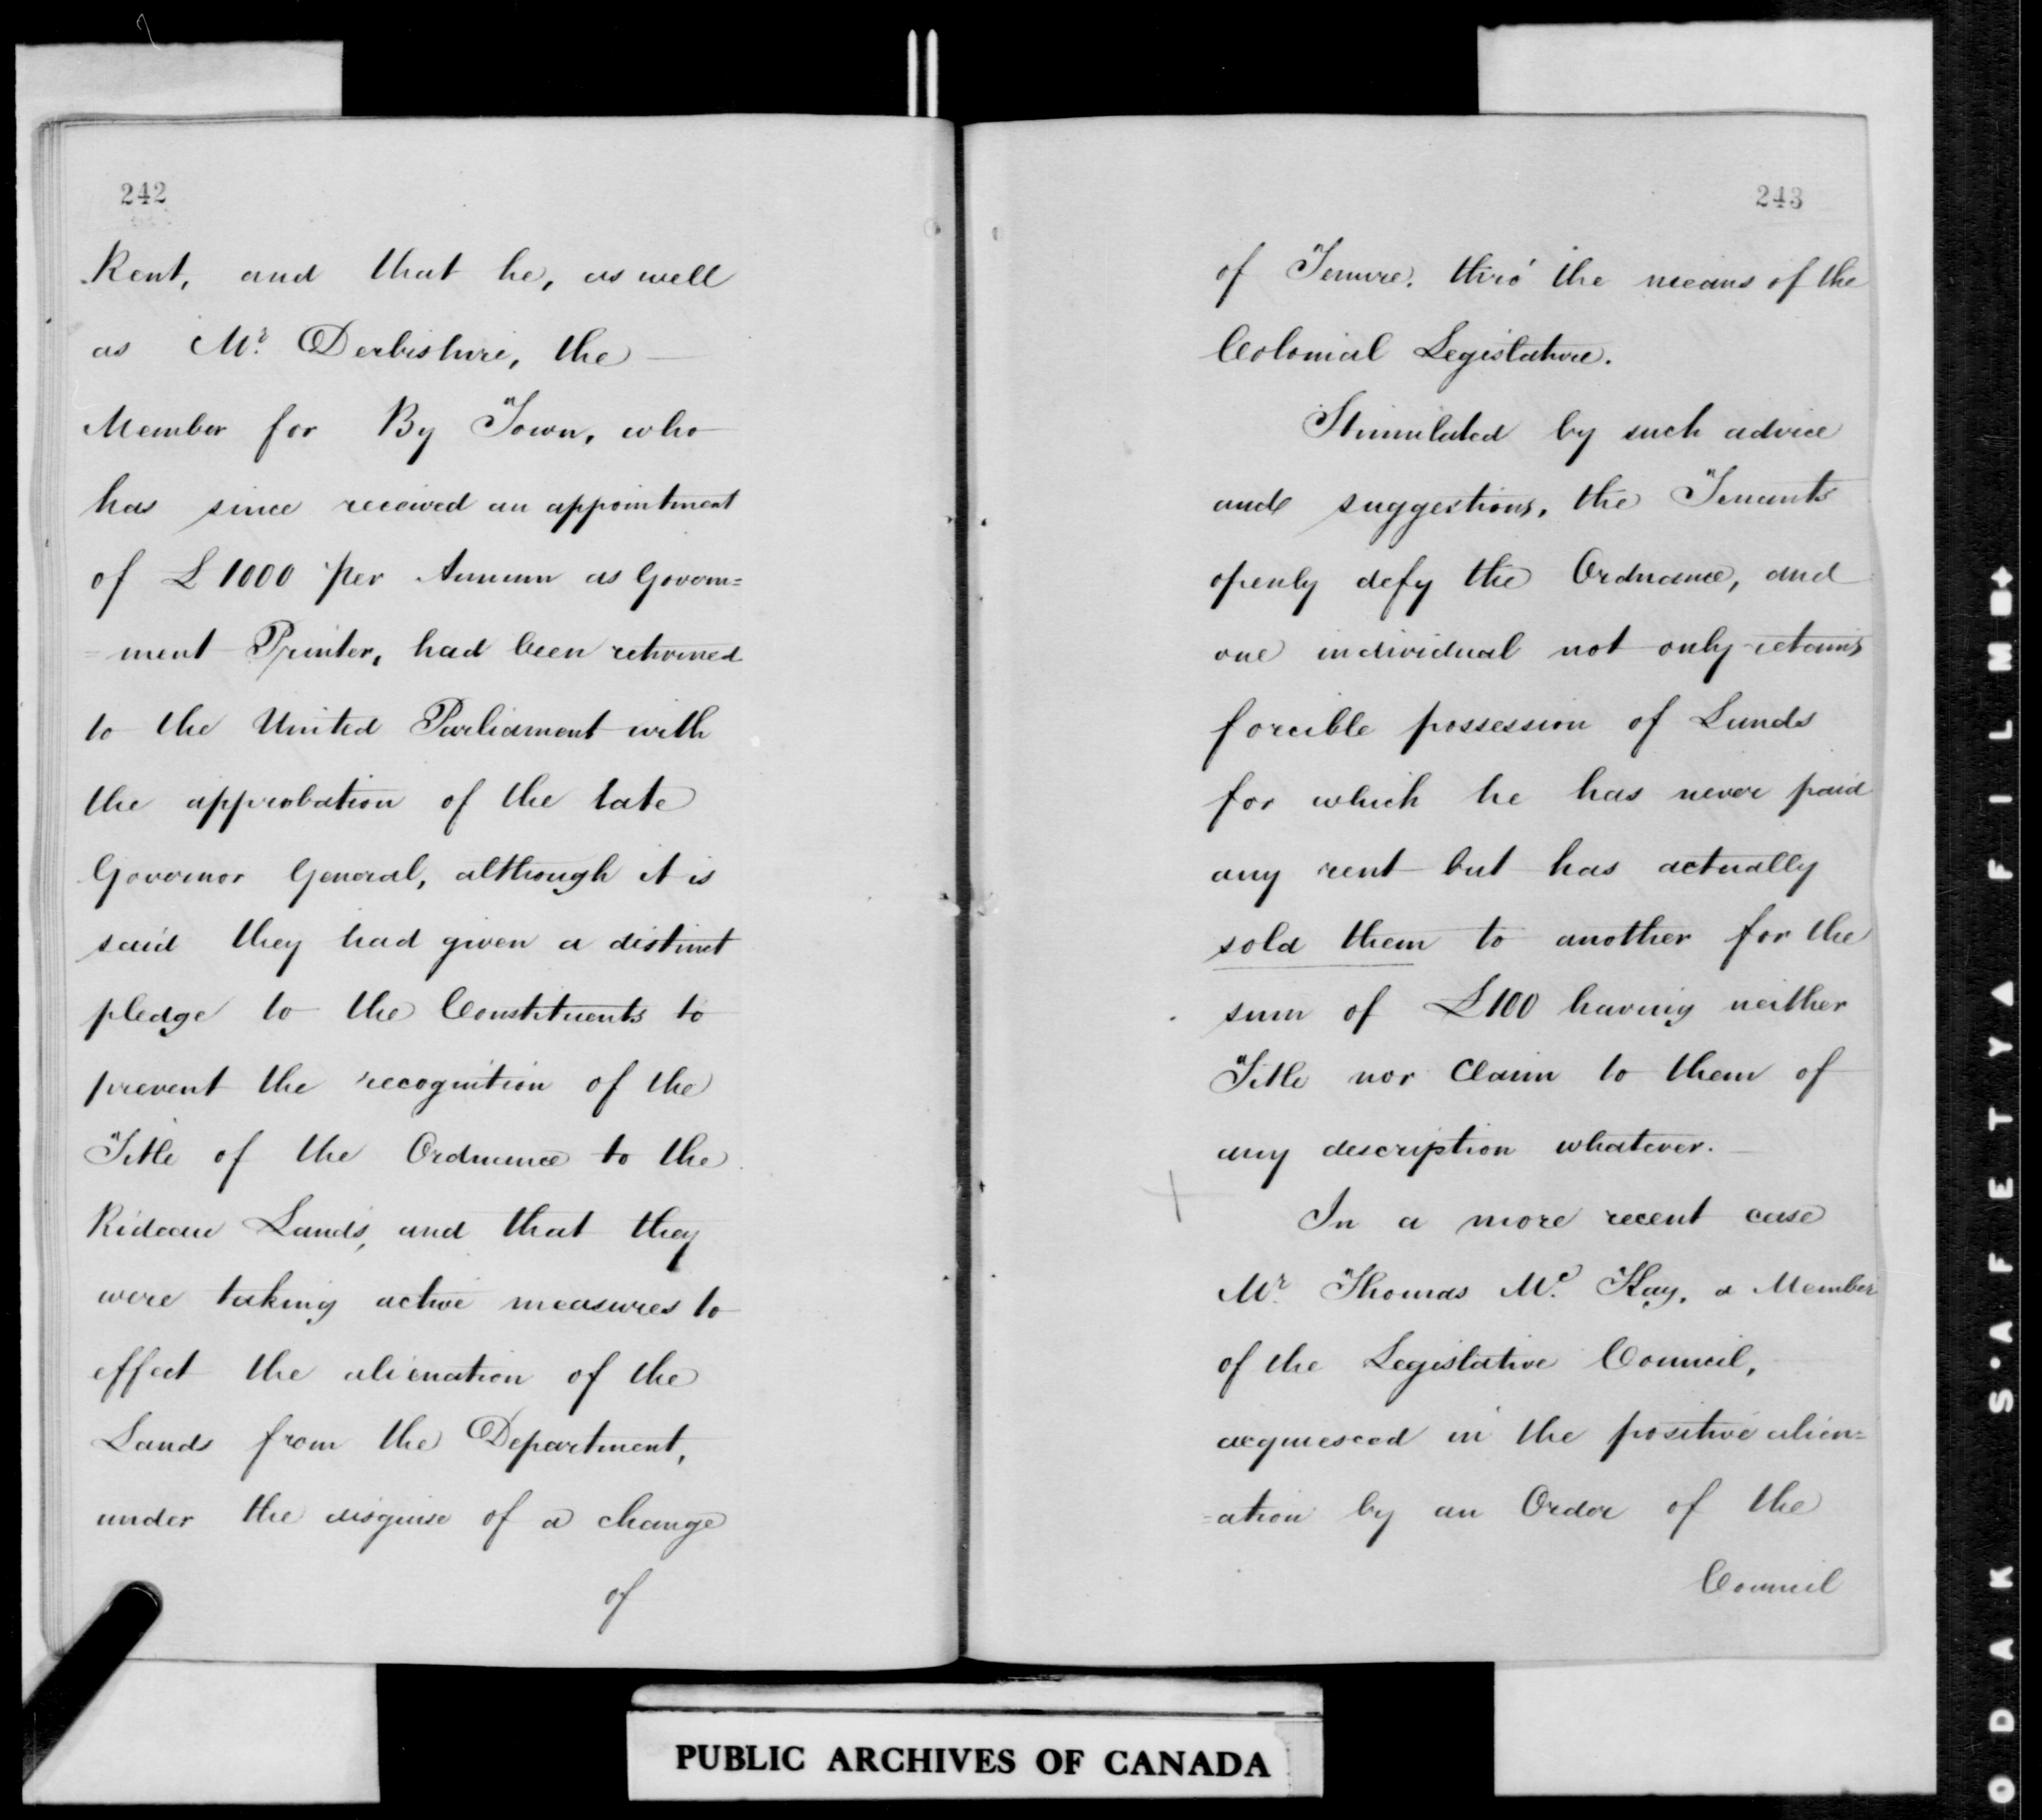 242
Rent, and that he, as well
as Mr. Derbishire, the
Member for By Town, who
has since received an appointment
of £1000 per Annum as Govern=
=ment Printer, had been returned
to the United Parliament with
the approbation of the late
Governor General, although it is
said they had given a distinct
pledge to the Constituents to
prevent the recognition of the
Title of the Ordnance to the
Rideau Lands, and that they
were taking active measures to
effect the alienation of the
Lands from the Department,
under the disguise of a change
of
243
of Tenure, thro' the means of the
Colonial Legislature.
Stimulated by such advice
and suggestions, the Tenants
openly defy the Ordnance, and
one individual not only retains
forcible possession of Lands
for which he has never paid
any rent but has actually
sold them to another for the
sum of £100 having neither
Title nor Claim to them of
any description whatever.
In a more recent case
Mr. Thomas Mc. Kay, a Member
of the Legislative Council,
acquiesced in the positive alien=
=ation by an Order of the
Council
PUBLIC ARCHIVES OF CANADA
ODAK S·A·F·E·T·Y ▲ F I L M